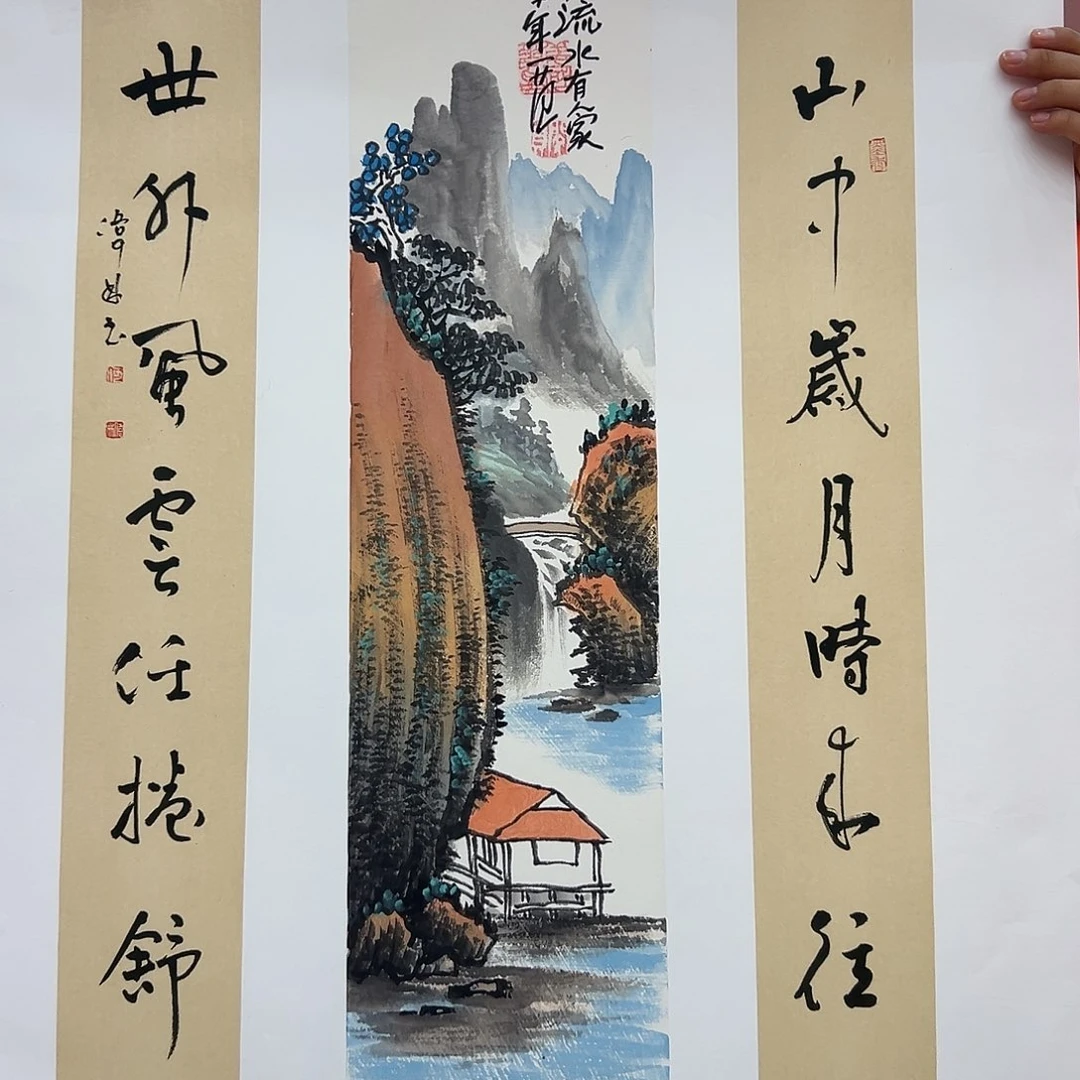 山中歲月時來往
流水有人家
世外風雲任捲舒